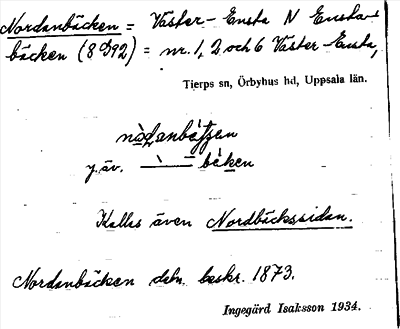 Nordanbäcken = Väster-Ensta N Ensta-
bäcken (8 D92) = nr. 1, 2 och 6 Väster-Ensta,
Tierps sn, Örbyhus hd, Uppsala län.
y. äv. — bèken
Kallas även Nordbäckssidan.
Nordanbäcken debn. beskr. 1873.
Ingegärd Isaksson 1934.